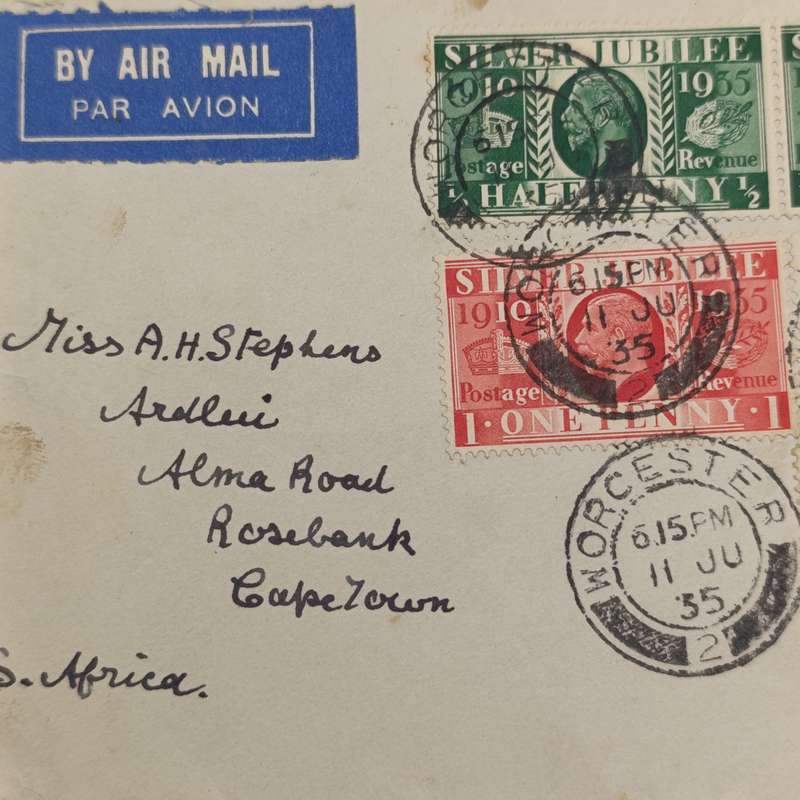 BY AIR MAIL
PAR AVION
SILVER JUBILEE
1910 1935
Postage Revenue
½ HALFPENNY ½
SILVER JUBILEE
1910 1935
Postage Revenue
1 · ONE PENNY · 1
WORCESTER
6.15 PM
11 JU
35
2
WORCESTER
6.15 PM
11 JU
35
2
Miss A.H. Stephens
Ardlui
Alma Road
Rosebank
Cape Town
S. Africa.